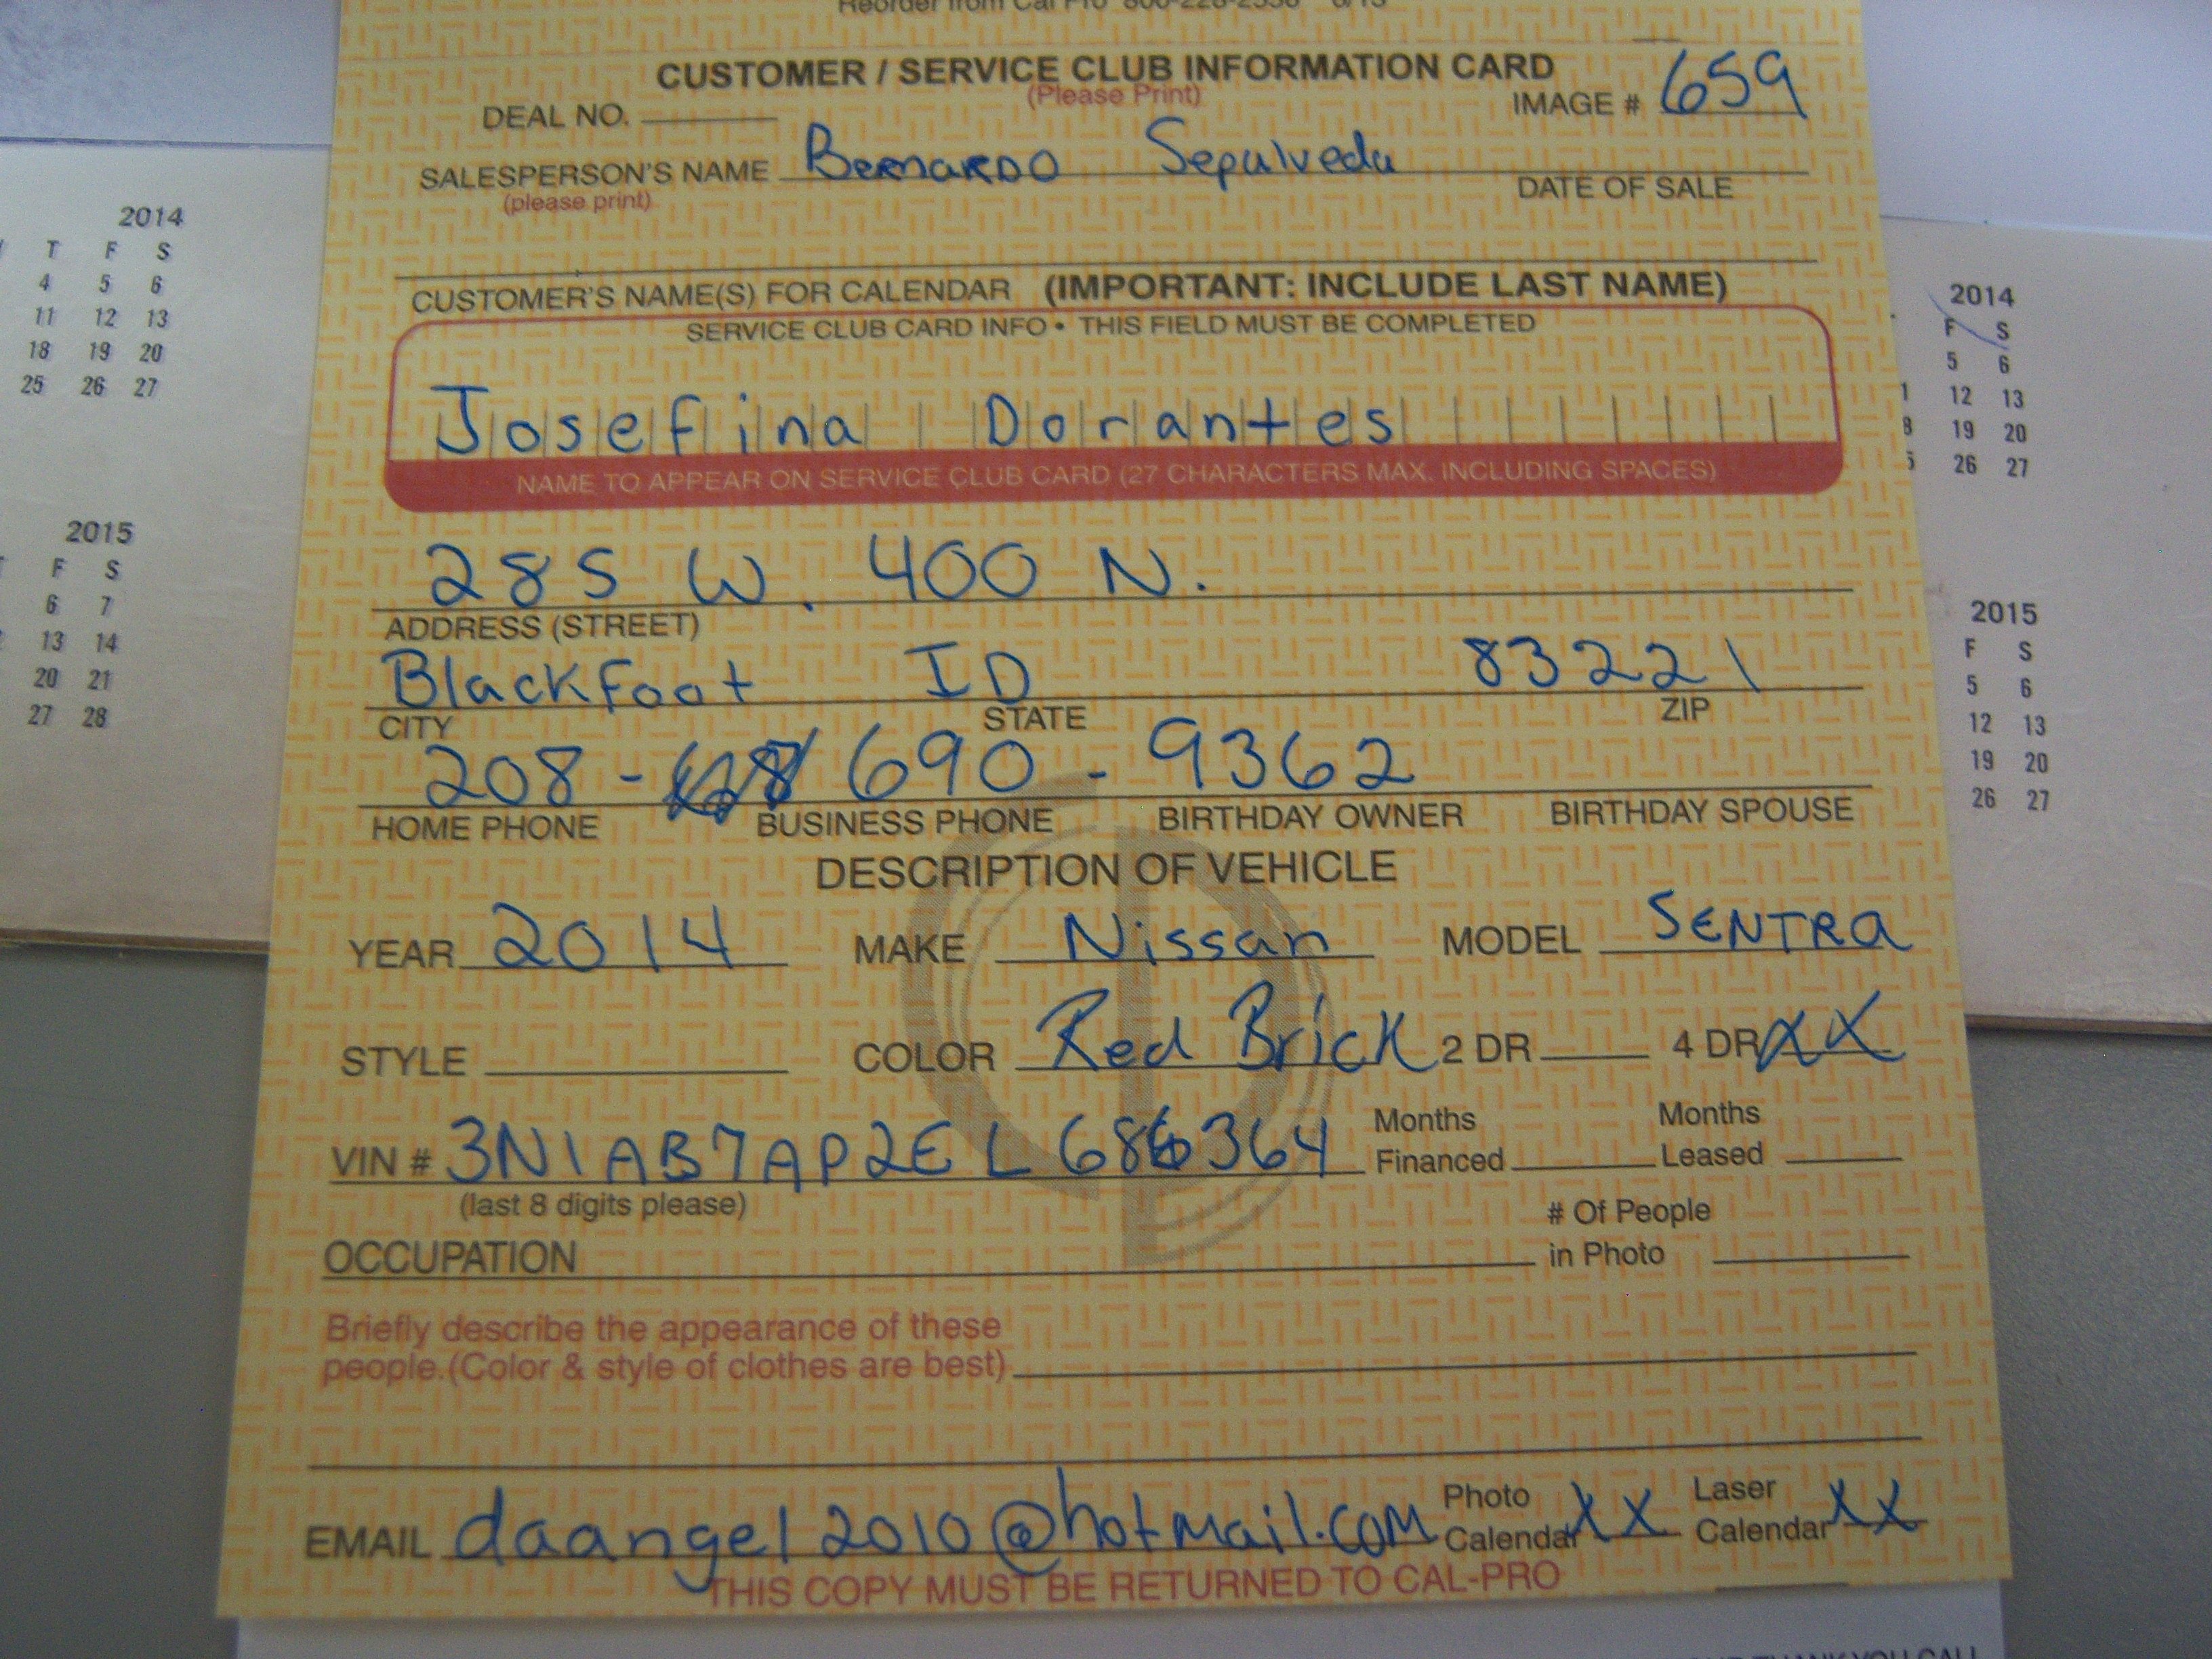 Reorder from Cal Pro 800-228-2558 6/13
CUSTOMER / SERVICE CLUB INFORMATION CARD
(Please Print)
DEAL NO. IMAGE # 659
SALESPERSON'S NAME Bernardo Sepulveda DATE OF SALE
(please print)
CUSTOMER'S NAME(S) FOR CALENDAR (IMPORTANT: INCLUDE LAST NAME)
SERVICE CLUB CARD INFO • THIS FIELD MUST BE COMPLETED
Josefina Dorantes
NAME TO APPEAR ON SERVICE CLUB CARD (27 CHARACTERS MAX. INCLUDING SPACES)
285 W. 400 N.
ADDRESS (STREET)
Blackfoot ID 83221
CITY STATE ZIP
208 - 690 - 9362
HOME PHONE BUSINESS PHONE BIRTHDAY OWNER BIRTHDAY SPOUSE
DESCRIPTION OF VEHICLE
YEAR 2014 MAKE Nissan MODEL SENTRA
STYLE COLOR Red Brick 2 DR 4 DR XX
VIN # 3N1AB7AP2EL686364 Months Financed Months Leased
(last 8 digits please)
OCCUPATION # Of People in Photo
Briefly describe the appearance of these
people.(Color & style of clothes are best)
EMAIL daangel2010@hotmail.com Photo Calendar XX Laser Calendar XX
THIS COPY MUST BE RETURNED TO CAL-PRO
2014
T F S
4 5 6
11 12 13
18 19 20
25 26 27
2015
F S
6 7
13 14
20 21
27 28
2014
F S
5 6
12 13
19 20
26 27
2015
F S
5 6
12 13
19 20
26 27